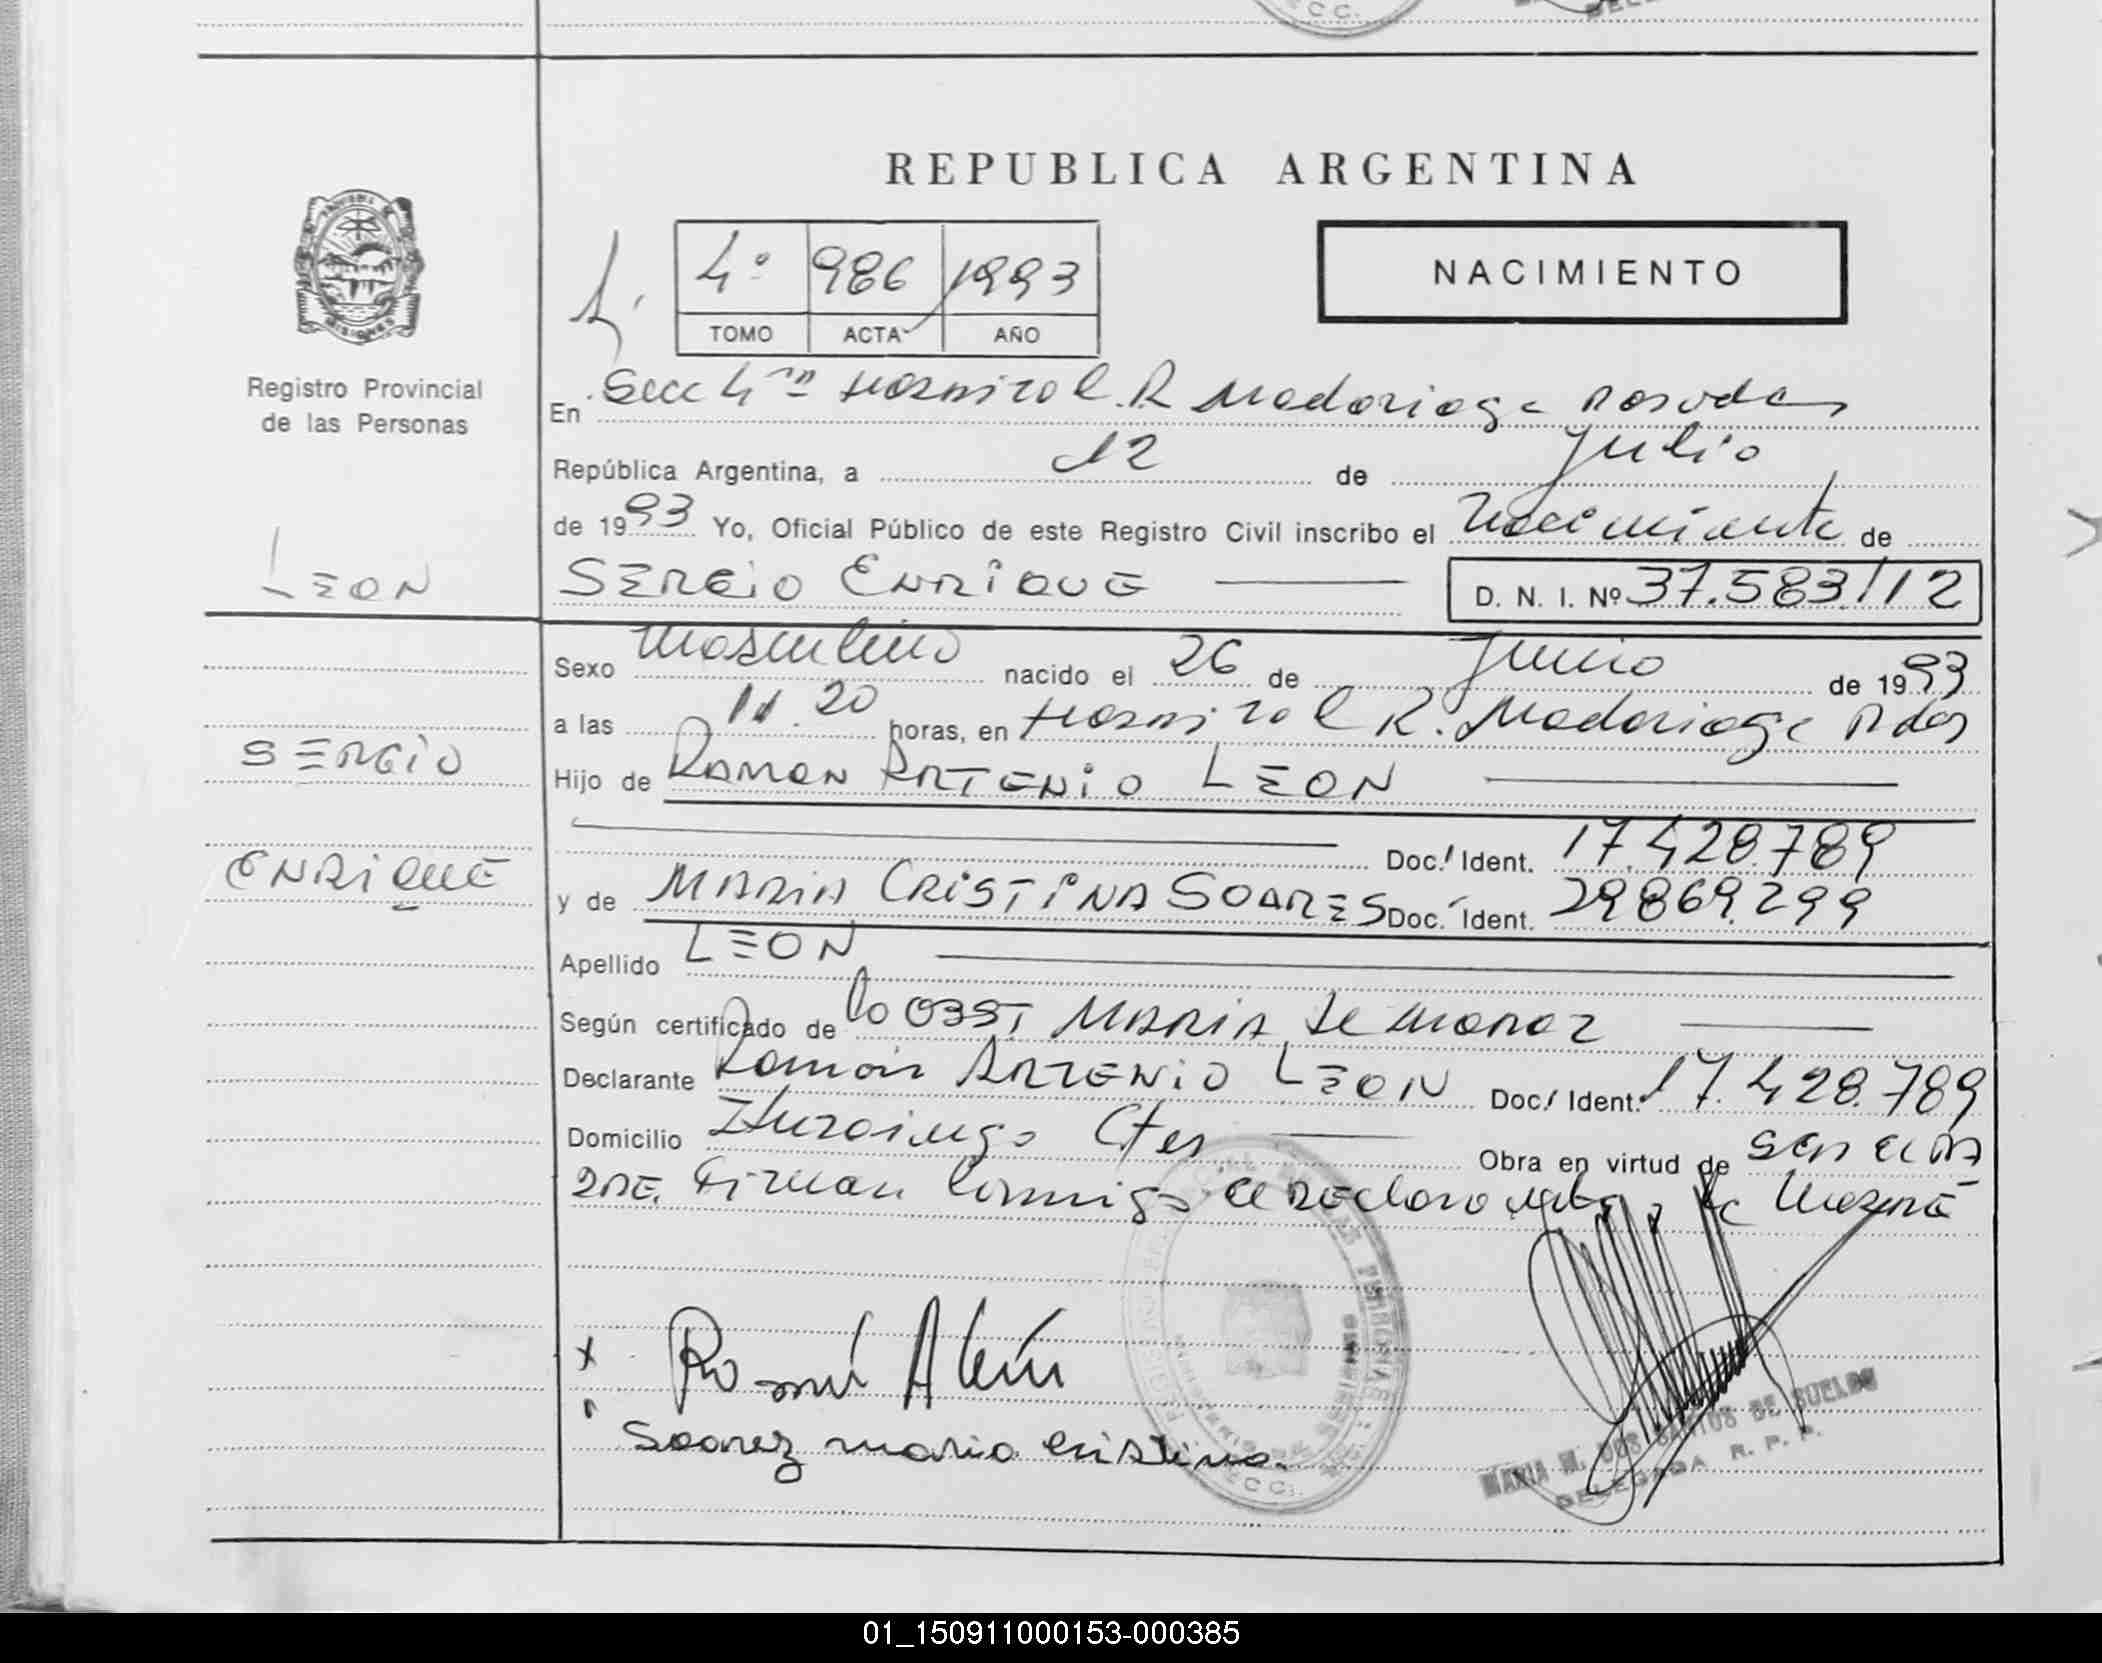 REPUBLICA ARGENTINA
4º 986 1993
TOMO ACTA AÑO
NACIMIENTO
MISIONES
Registro Provincial
de las Personas
En Secc 4ta Hospital R Madariaga Posadas
República Argentina, a 12 de Julio
de 1993 Yo, Oficial Público de este Registro Civil inscribo el Nacimiento de
LEON
SERGIO ENRIQUE D. N. I. Nº 37.583.112
Sexo Masculino nacido el 26 de Junio de 1993
a las 11.20 horas, en Hospital R. Madariaga Pdas
SERGIO
Hijo de RAMON ARTENIO LEON
Doc. Ident. 17.428.789
ENRIQUE
y de MARIA CRISTINA SOARES Doc. Ident. 29.869.299
Apellido LEON
Según certificado de la OBST MARIA
Declarante Ramón ARTENIO LEON Doc. Ident. 17.428.789
Domicilio Ituzaingo Ctes Obra en virtud de
Firman conmigo el Declarante y la
Ramón A León
Soarez maria cristina.
MARIA M. DOS SANTOS DE SUELDO
DELEGADA R. P. P.
01_150911000153-000385